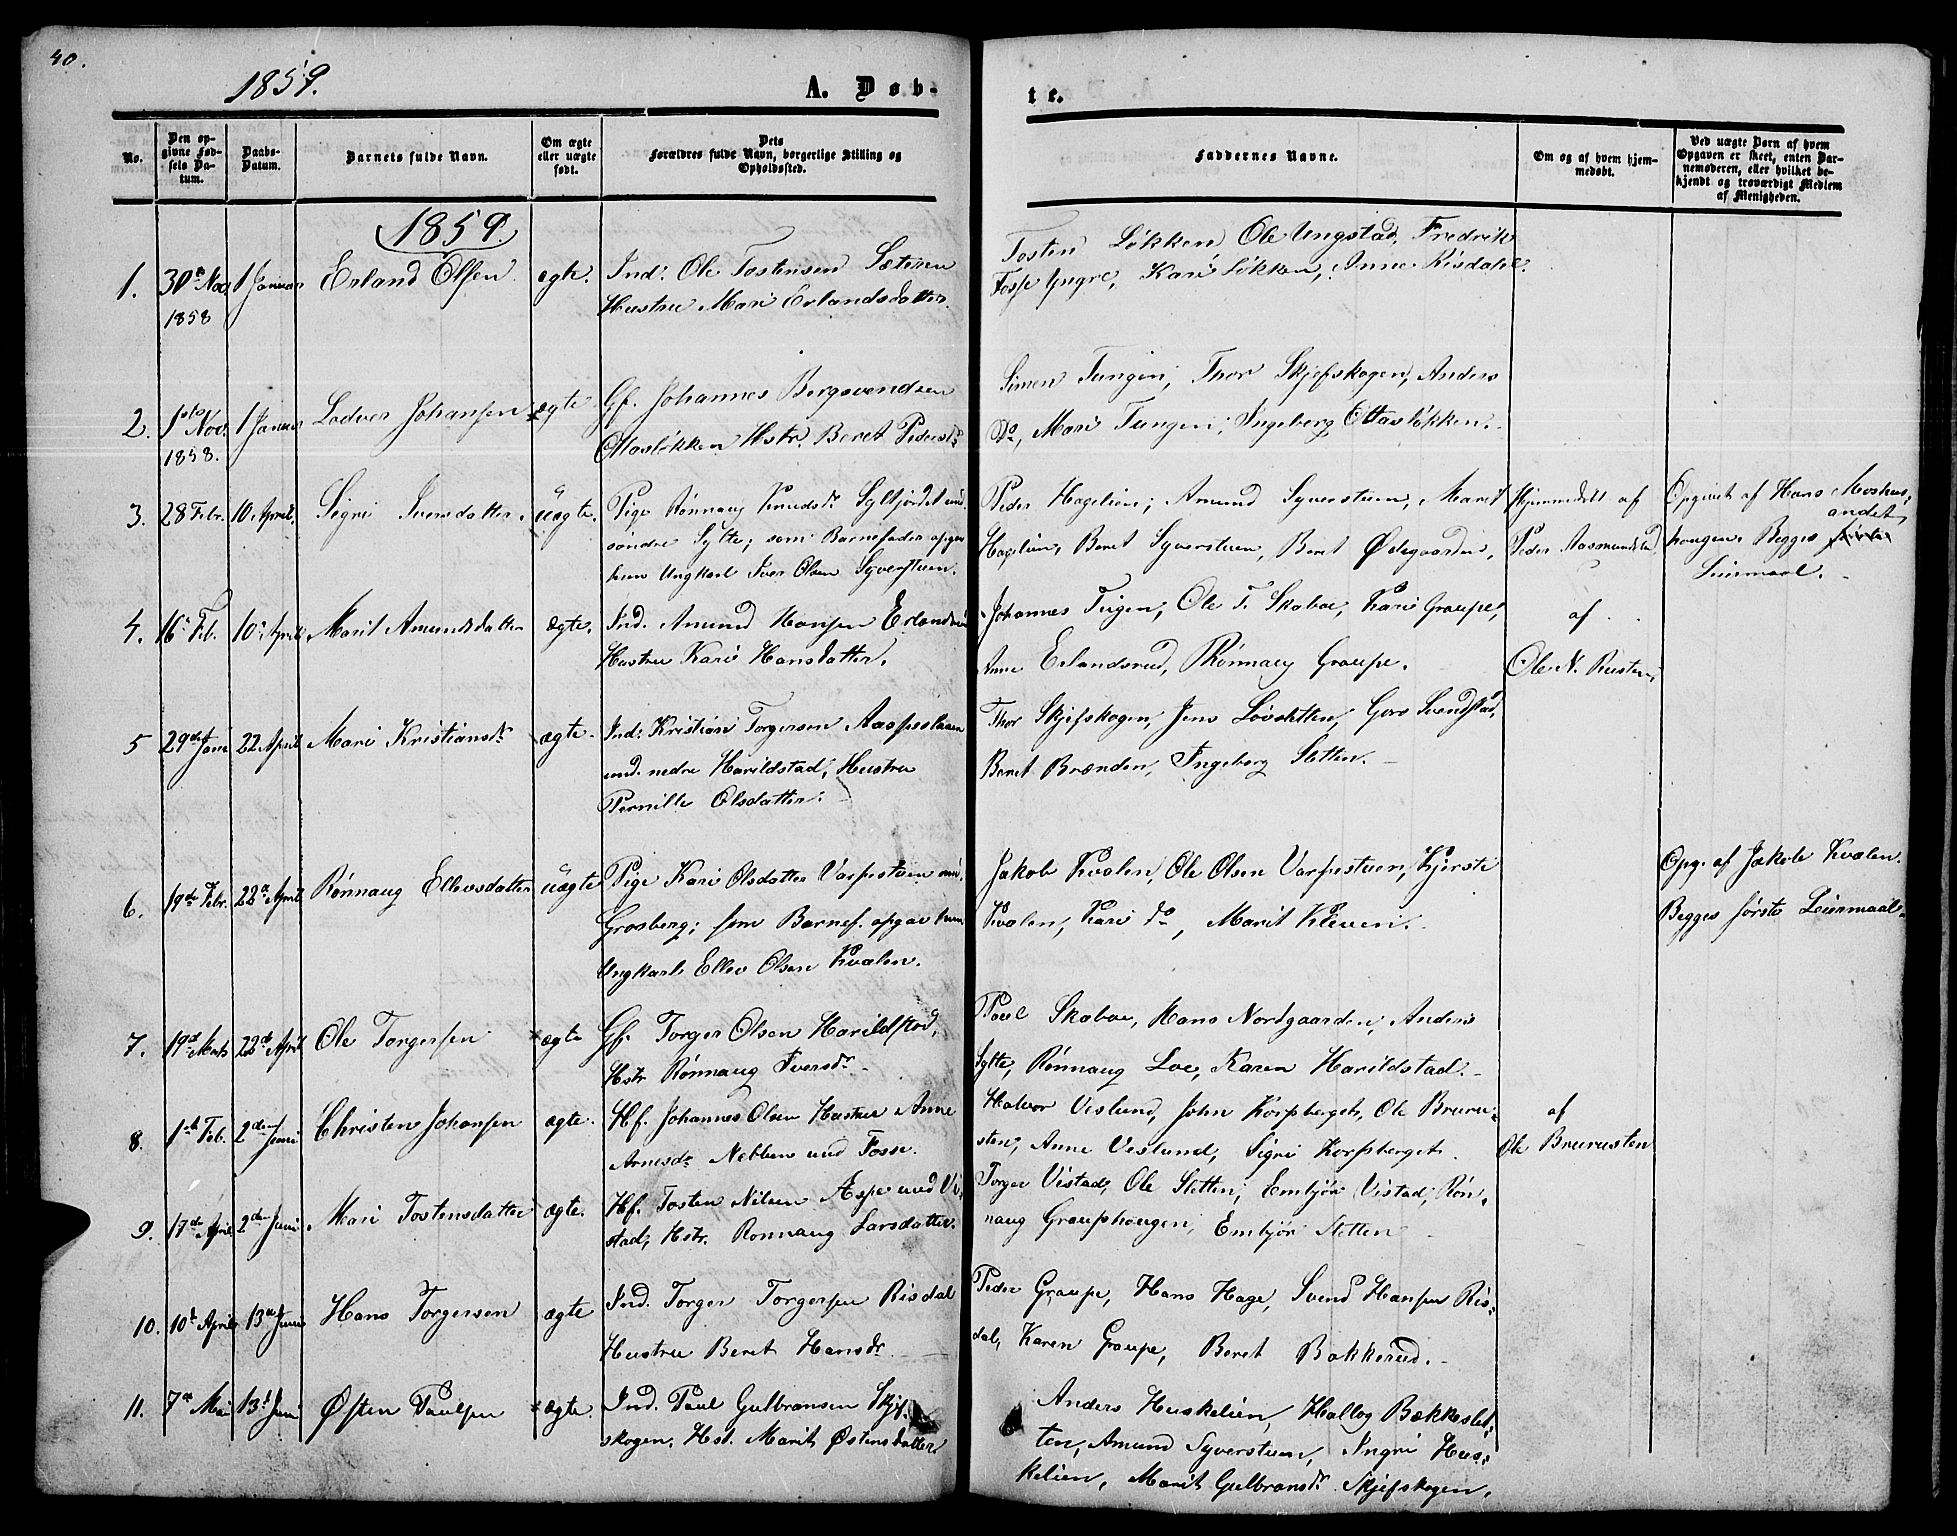 40.
1859.
A. Døb-
te.
No.
Den op-
givne Fød-
sels Da-
tum.
Daabs-
Datum.
Barnets fulde Navn.
Om ægte
eller uægte
født.
Dets
Forældres fulde Navn, borgerlige Stilling og
Opholdssted.
Faddernes Navne.
Om og af hvem hjem-
medøbt.
Ved uægte Børn af hvem
Opgaven er skeet, enten Bar-
nemoderen, eller hvilket be-
kjendt og troværdigt Medlem
af Menigheden.
1859.
1.
30te Nov
1858
1 Januar
Erland Olsen
ægte.
Ind: Ole Tostensen Sæteren
Hustru Mari Erlandsdatter.
Tosten Løkken, Ole Ungstad, Fredrik
Fosse yngre, Kari Løkken, Anne Risdahl.
2.
1ste Nov.
1858.
1 Januar
Ladver Johansen
ægte
Gf. Johannes Bergsvendsen
Ottasløkken Hstr. Beret Pedersdr
Simen Tungen, Thor Skjefskogen, Anders
Do, Mari Tungen, Ingeberg Ottasløkken.
3.
28 Febr.
10 April.
Sigri Iversdatter.
uægte.
Pige Rønnaug Knudsdr Syltjordet und.
søndre Sylte; som Barnefader opgav
hun Ungkarl Iver Olsen Syverstuen.
Peder Hagelien; Amund Syverstuen, Marit
Hagelien, Beret Syverstuen, Beret Ødegaarden,
Hjemmedøbt af
Peder Aasmundstad
Opgivet af Hans Moshus-
haugen. Begges andet
Leiermaal.
4.
16 Feb.
10 April
Marit Amundsdatter
ægte.
Ind. Amund Hansen Erlandsrud
Hustru Kari Hansdatter.
Johannes Tigen, Ole T. Skaboe, Kari Graupe,
Anne Erlandsrud, Rønnaug Graupe.
af
Ole N. Rusten,
5
29de Janu
22 April
Mari Kristiansdr
ægte.
Ind: Kristian Torgersen Aaspeslaaen
und. nedre Harildstad, Hustru
Pernille Olsdatter.
Thor Skjefskogen, Jens Løvsletten, Guro Svendstad,
Beret Brænden, Ingeberg Sletten.
6.
19de Febr.
22de April
Rønnaug Ellevsdatter
uægte
Pige Kari Olsdatter Varpestuen und.
Grosberg; som Barnef. opgav hun
Ungkarl Ellev Olsen Kvalen.
Jakob Kvalen, Ole Olsen Varpestuen, Kjersti
Kvalen, Kari Do, Marit Kleven.
Opg. af Jakob Kvalen.
Begges første Leiermaal.
7.
19de Marts
22de April
Ole Torgersen
ægte
Gf. Torger Olsen Harildstad,
Hstr Rønnaug Iversdr
Poul Skaboe, Hans Nordgaarden, Anders
Sylte, Rønnaug Loe, Karen Harildstad.
8.
1ste Feb.
2den Juni
Christen Johansen
ægte.
Hf. Johannes Olsen Hustru Anne
Arnesdr Nebben und Fosse.
Halvor Veslund, John Korpberget, Ole Bruru-
sten, Anne Veslund, Sigri Korpberget.
af
Ole Brurusten
9.
17de April
2den Juni
Mari Tostensdatter
ægte.
Hf. Tosten Nilsen Aspe und Vi-
stad, Hstr. Rønnaug Larsdatter.
Torger Vistad, Ole Sletten, Embjør Vistad, Røn-
naug Graupehaugen, Embjør Sletten
10.
10de April
13de Juni
Hans Torgersen
ægte
Ind. Torger Torgersen Risdal
Hustru Beret Hansdr.
Peder Graupe, Hans Hage, Svend Hansen Ris-
dal, Karen Graupe, Beret Bakkerud.
11.
7de Mai
13de Juni
Østen Paulsen
ægte.
Ind. Paul Gulbransen Skjef-
skogen. Hst. Marit Østensdatter
Anders Huskelien, Hallog Bækkeslet-
ten, Amund Syverstuen, Ingri Hus-
kelien, Marit Gulbransdr. Skjefskogen.